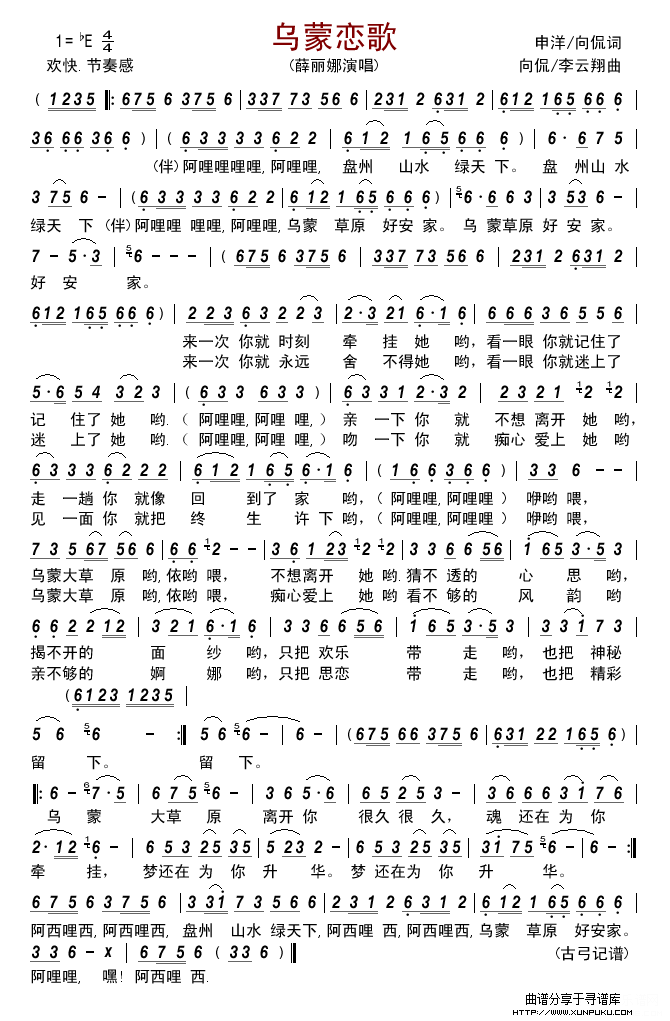 1= ♭E 4/4 乌蒙恋歌 申洋/向侃词
欢快.节奏感 (薛丽娜演唱) 向侃/李云翔曲
( 1235 ‖: 675 6 375 6 | 337 73 56 6 | 231 2 631 2 | 612 165 66 6 |
36 66 36 6 ) | ( 6 3 3 3 3 6 2 2 | 6 1 2 1 6 5 6 6 | 6 - - - ) | 6 · 6 7 5 |
(伴) 阿哩哩哩哩, 阿哩哩, 盘州 山水 绿天 下。 盘 州山 水
3 75 6 - | ( 6 3 3 3 3 6 2 2 | 612 165 6 6 6 ) | 6 · 6 6 3 | 3 53 6 - |
绿天 下 (伴) 阿哩哩 哩哩, 阿哩哩, 乌蒙 草原 好安 家。 乌 蒙草原 好 安 家。
7 - 5·3 | 6 - - - | ( 675 6 375 6 | 337 73 56 6 | 231 2 631 2 |
好 安 家。
612 165 66 6 ) | 2 2 3 6 3 2 2 3 | 2·3 21 6·1 6 | 6 6 6 3 6 5 5 6 |
来一次 你就 时刻 牵 挂 她 哟, 看一眼 你就记住了
来一次 你就 永远 舍 不得她 哟, 看一眼 你就迷上了
5·6 5 4 3 2 3 | ( 6 3 3 6 3 3 ) | 6 3 3 1 2·3 2 | 2 3 2 1 2 2 |
记 住了 她 哟. ( 阿哩哩, 阿哩 哩, ) 亲 一下 你 就 不想 离开 她 哟,
迷 上了 她 哟. ( 阿哩哩, 阿哩 哩, ) 吻 一下 你 就 痴心 爱上 她 哟
6 3 3 3 6 2 2 2 | 6 1 2 1 6 5 6·1 6 | ( 1 6 6 3 6 6 ) | 3 3 6 - |
走 一趟 你 就像 回 到了 家 哟, ( 阿哩哩, 阿哩哩 ) 咿哟 喂,
见 一面 你 就把 终 生 许 下 哟, ( 阿哩哩, 阿哩哩 ) 咿哟 喂,
7 3 5 67 56 6 | 6 6 2 - - | 3 6 1 23 2 2 | 3 3 6 6 56 | 1 65 3·5 3 |
乌蒙大草 原 哟, 依哟 喂, 不想离开 她 哟. 猜不 透的 心 思 哟,
乌蒙大草 原 哟, 依哟 喂, 痴心爱上 她 哟 看不 够的 风 韵 哟
6 6 2 2 12 | 3 21 6·1 6 | 6 3 6 6 56 | 1 65 3·5 3 | 3 3 1 7 3 |
揭不开的 面 纱 哟, 只把 欢乐 带 走 哟, 也把 神秘
亲不够的 婀 娜 哟, 只把 思恋 带 走 哟, 也把 精彩
( 6123 1235 |
5 6 6 - :‖ 5 6 6 - | 6 - | ( 675 66 375 6 | 631 22 165 6 )
留 下。 留 下。
‖: 6 - 7·5 | 6 75 6 - | 6 6 2 1 6 | 6 5 25 3 - | 3 6 6 6 3 1 6 5 |
乌 蒙 大草 原 离开 你 很久 很 久, 魂 还在 为 你
2·12 6 - | 6 5 3 2 5 3 5 | 5 23 5 - | 6 5 3 2 5 3 5 | 31 75 6 - | 6 - :‖
牵 挂, 梦还在 为 你 升 华。 梦 还在 为 你 升 华。
6 7 5 6 3 7 5 6 | 3 31 7 3 5 6 6 | 2 3 1 2 6 3 1 2 | 6 1 2 165 6 6 6 |
阿西哩西, 阿西哩西, 盘州 山水 绿天下, 阿西哩 西, 阿西哩西, 乌蒙 草原 好安家。
3 3 6 - x | 6 7 5 6 ( 33 6 ) ‖ (古弓记谱)
阿哩哩, 嘿! 阿西哩 西.
曲谱分享于寻谱库
HTTP://WWW.XUNPUKU.COM